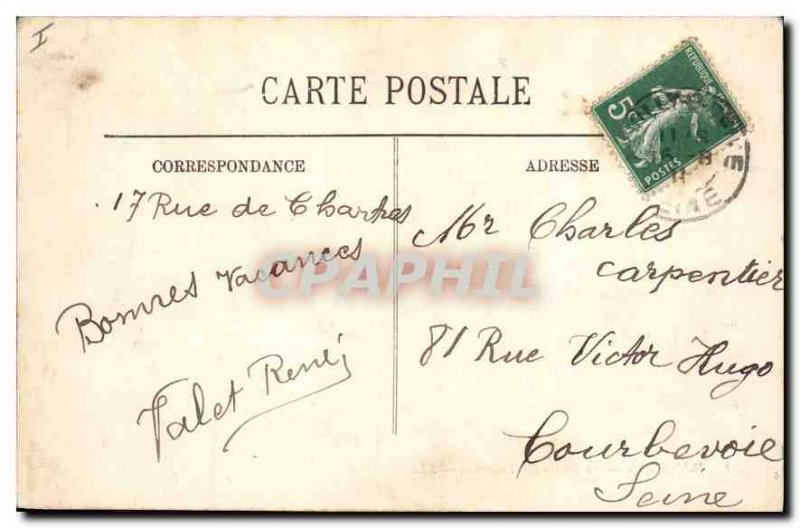 I
CARTE POSTALE
CORRESPONDANCE
17 Rue de Chartres
Bonnes Vacances
Valet René
ADRESSE
Mr Charles
Carpentier
81 Rue Victor Hugo
Courbevoie
Seine
5c
POSTES
SEINE
CPAPHIL